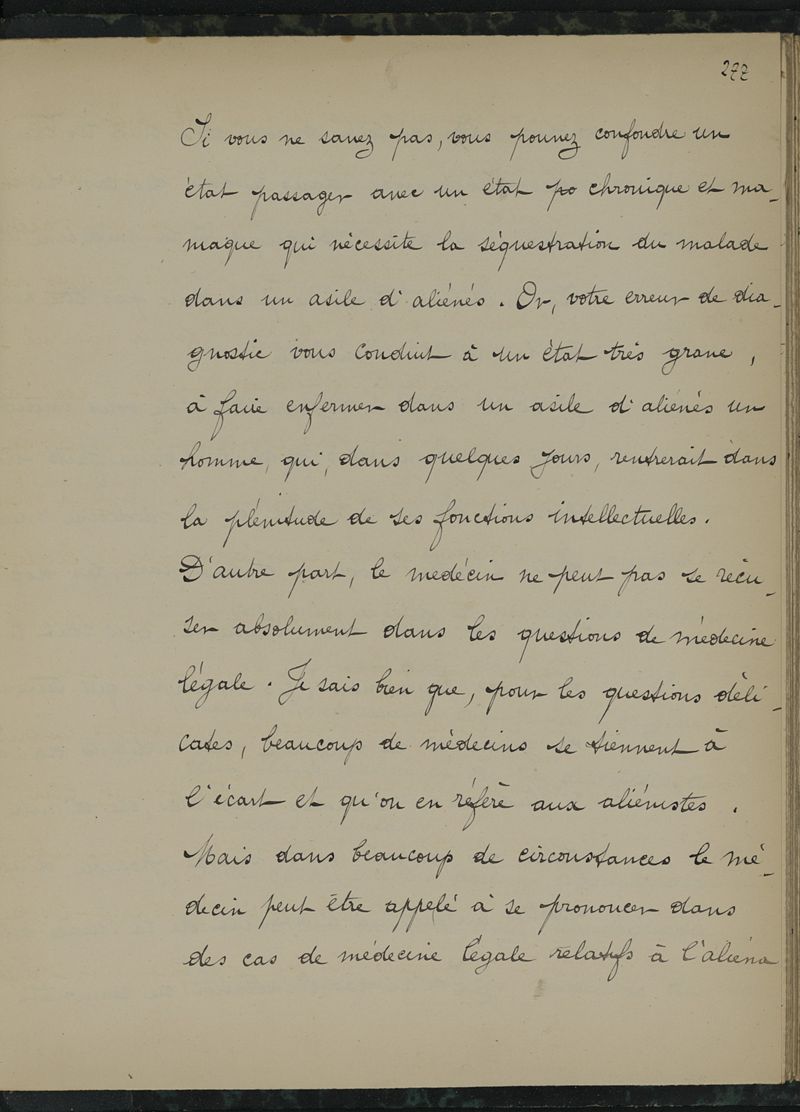 277
Si vous ne savez pas, vous pouvez confondre un
état passager avec un état po chronique et ma-
niaque qui nécessite la séquestration du malade
dans un asile d'aliénés. Or, votre erreur de dia-
gnostic vous conduit à un état très grave,
à faire enfermer dans un asile d'aliénés un
homme, qui, dans quelques jours, rentrerait dans
la plénitude de ses fonctions intellectuelles.
D'autre part, le medécin ne peut pas se récu-
ser absolument dans les questions de médecine
légale. Je sais bien que, pour les questions déli-
cates, beaucoup de médecins se tiennent à
l'écart et qu'on en réfère aux aliénistes.
Mais dans beaucoup de circonstances le mé-
decin peut être appelé à se prononcer dans
des cas de médecine légale relatifs à l'aliéna